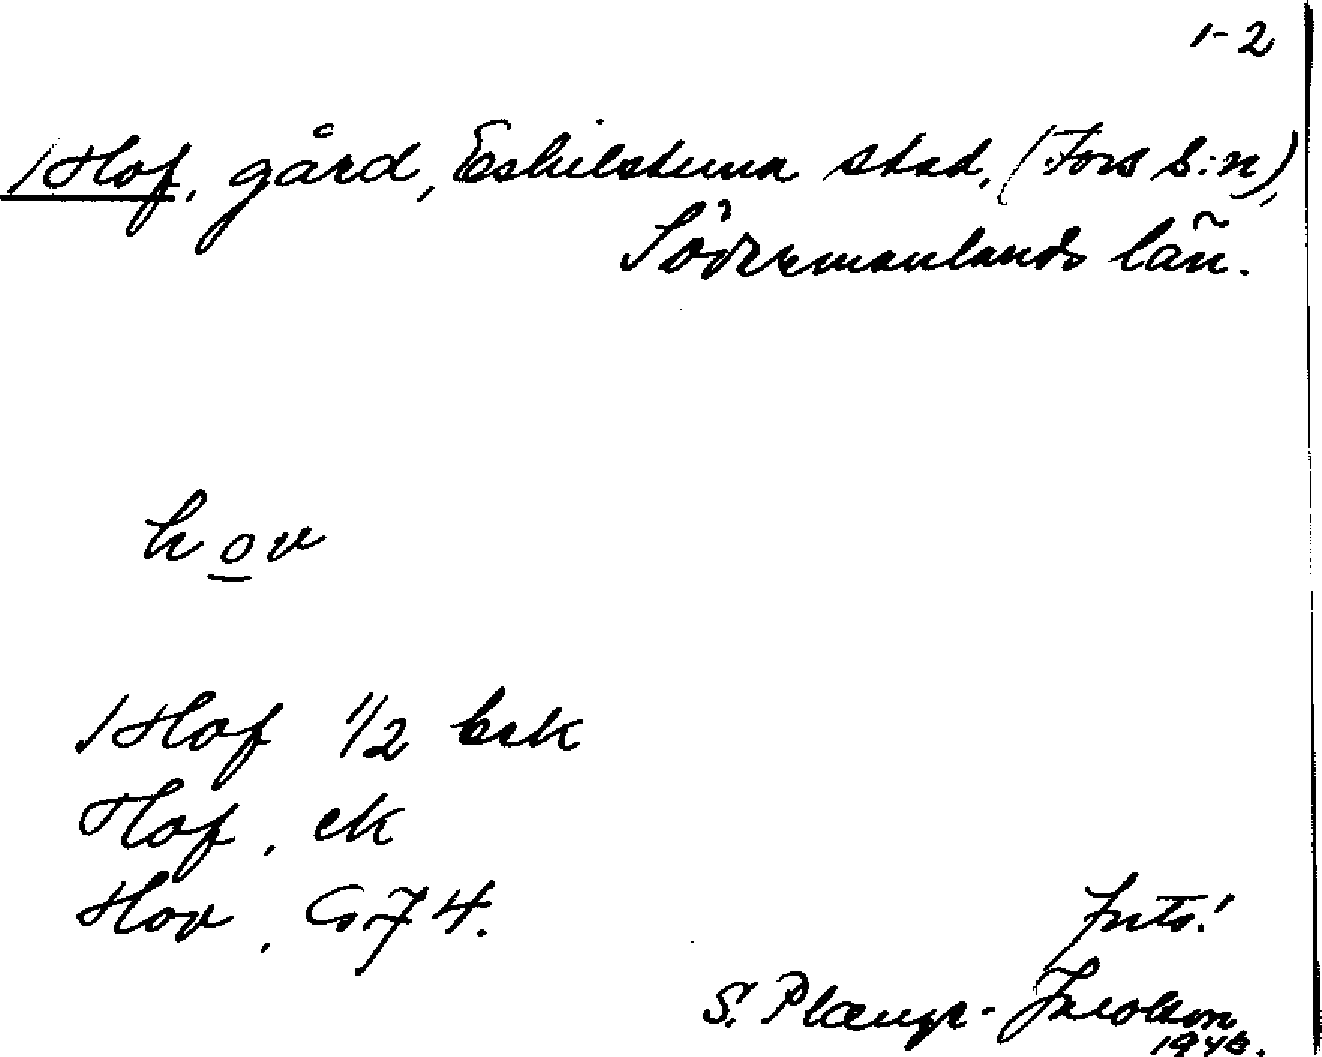 1-2
Hof, gård, Eskilstuna stad, (Fors s:n),
Södermanlands län.
hov
Hof 1/2 bek
Hof, ek
Hov, G 74.
S. Plænge-Jacobson
1946.